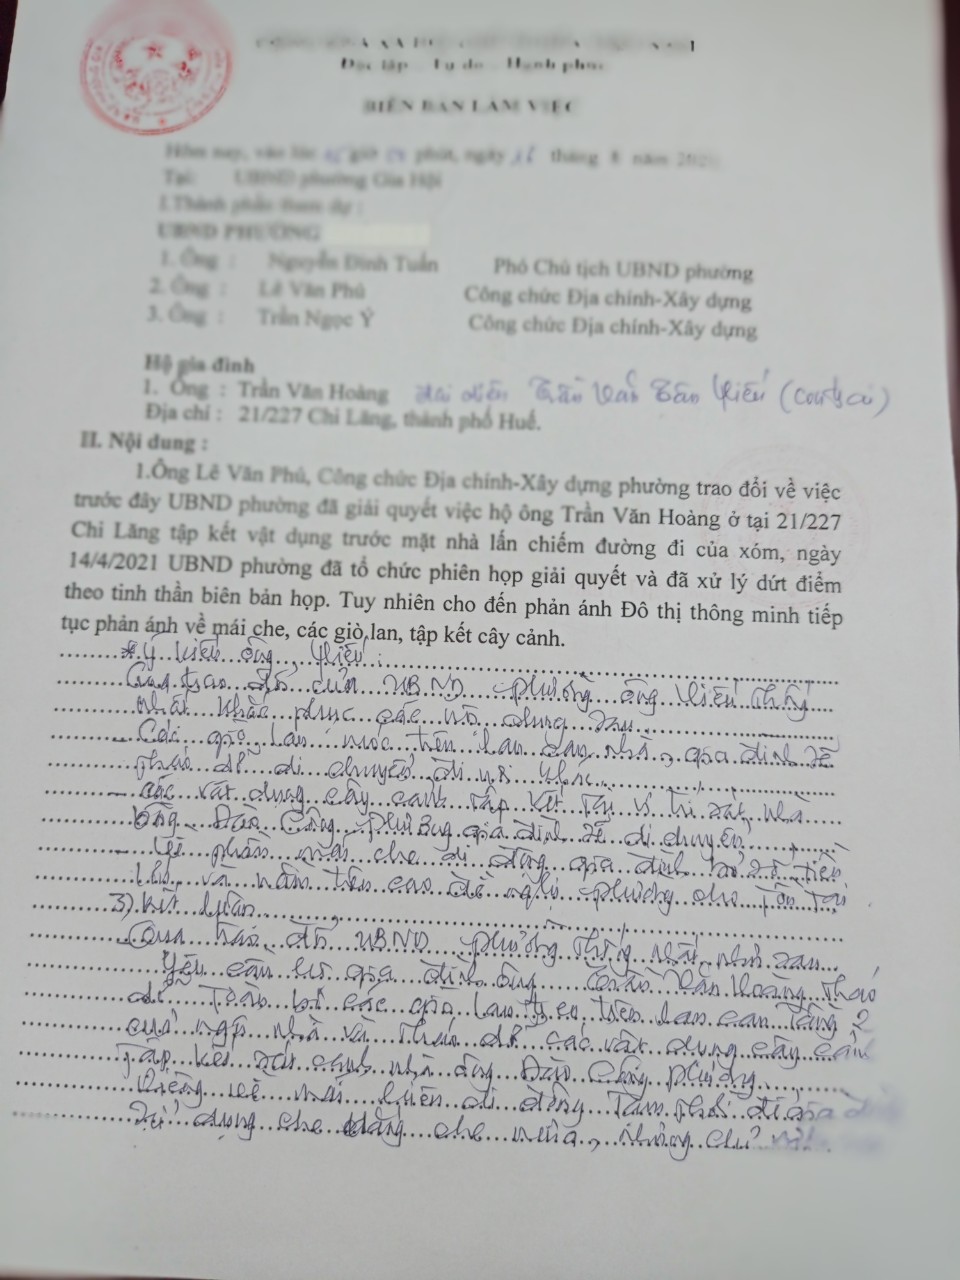 Độc lập - Tự do - Hạnh phúc
BIÊN BẢN LÀM VIỆC
Hôm nay, vào lúc giờ phút, ngày tháng 8 năm
Tại: UBND phường Gia Hội
I.Thành phần tham dự :
UBND PHƯỜNG
1. Ông : Nguyễn Đình Tuấn Phó Chủ tịch UBND phường
2. Ông : Lê Văn Phú Công chức Địa chính-Xây dựng
3. Ông : Trần Ngọc Ý Công chức Địa chính-Xây dựng
Hộ gia đình
1. Ông : Trần Văn Hoàng đại diện Trần Văn Hiếu (con trai)
Địa chỉ : 21/227 Chi Lăng, thành phố Huế.
II. Nội dung :
1.Ông Lê Văn Phú, Công chức Địa chính-Xây dựng phường trao đổi về việc
trước đây UBND phường đã giải quyết việc hộ ông Trần Văn Hoàng ở tại 21/227
Chi Lăng tập kết vật dụng trước mặt nhà lấn chiếm đường đi của xóm, ngày
14/4/2021 UBND phường đã tổ chức phiên họp giải quyết và đã xử lý dứt điểm
theo tinh thần biên bản họp. Tuy nhiên cho đến phản ánh Đô thị thông minh tiếp
tục phản ánh về mái che, các giò lan, tập kết cây cảnh.
* Ý kiến ông Hiếu :
Qua trao đổi của UBND phường ông Hiếu thống
nhất khắc phục các nội dung sau
- Các giò lan móc trên lan can nhà, gia đình sẽ
tháo dỡ di chuyển đi nơi khác
- Các vật dụng cây cảnh tập kết tại vị trí sát nhà
ông Đào Công Phương gia đình sẽ di chuyển
- Về phần mái che di động gia đình
và nằm trên cao đề nghị phường cho tồn tại
3) Kết luận
Qua trao đổi UBND phường thống nhất như sau
Yêu cầu hộ gia đình ông Trần Văn Hoàng tháo
dỡ toàn bộ các giò lan treo trên lan can tầng 2
của ngôi nhà và tháo dỡ các vật dụng cây cảnh
tập kết sát cạnh nhà ông Đào Công Phương
Riêng về mái hiên di động tạm thời để gia đình
sử dụng che nắng che mưa, nhưng chỉ